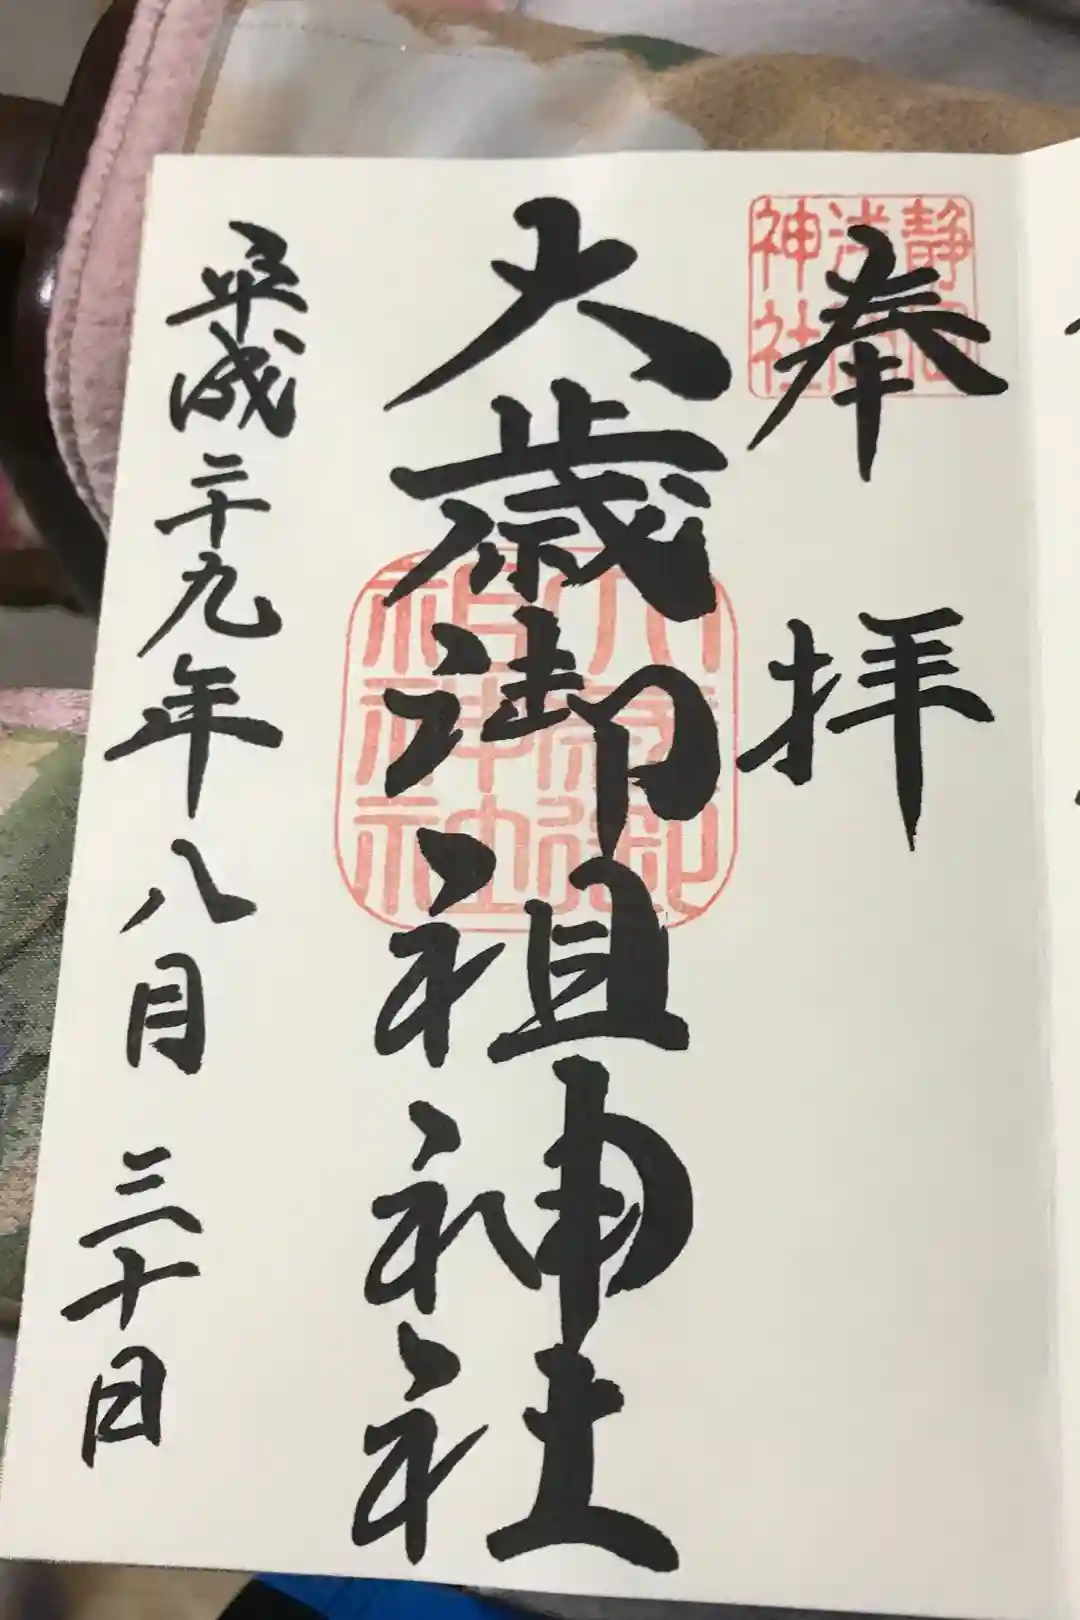 奉拝
静岡浅間神社
大歳御祖神社
大歳御祖神社
平成二十九年八月三十日